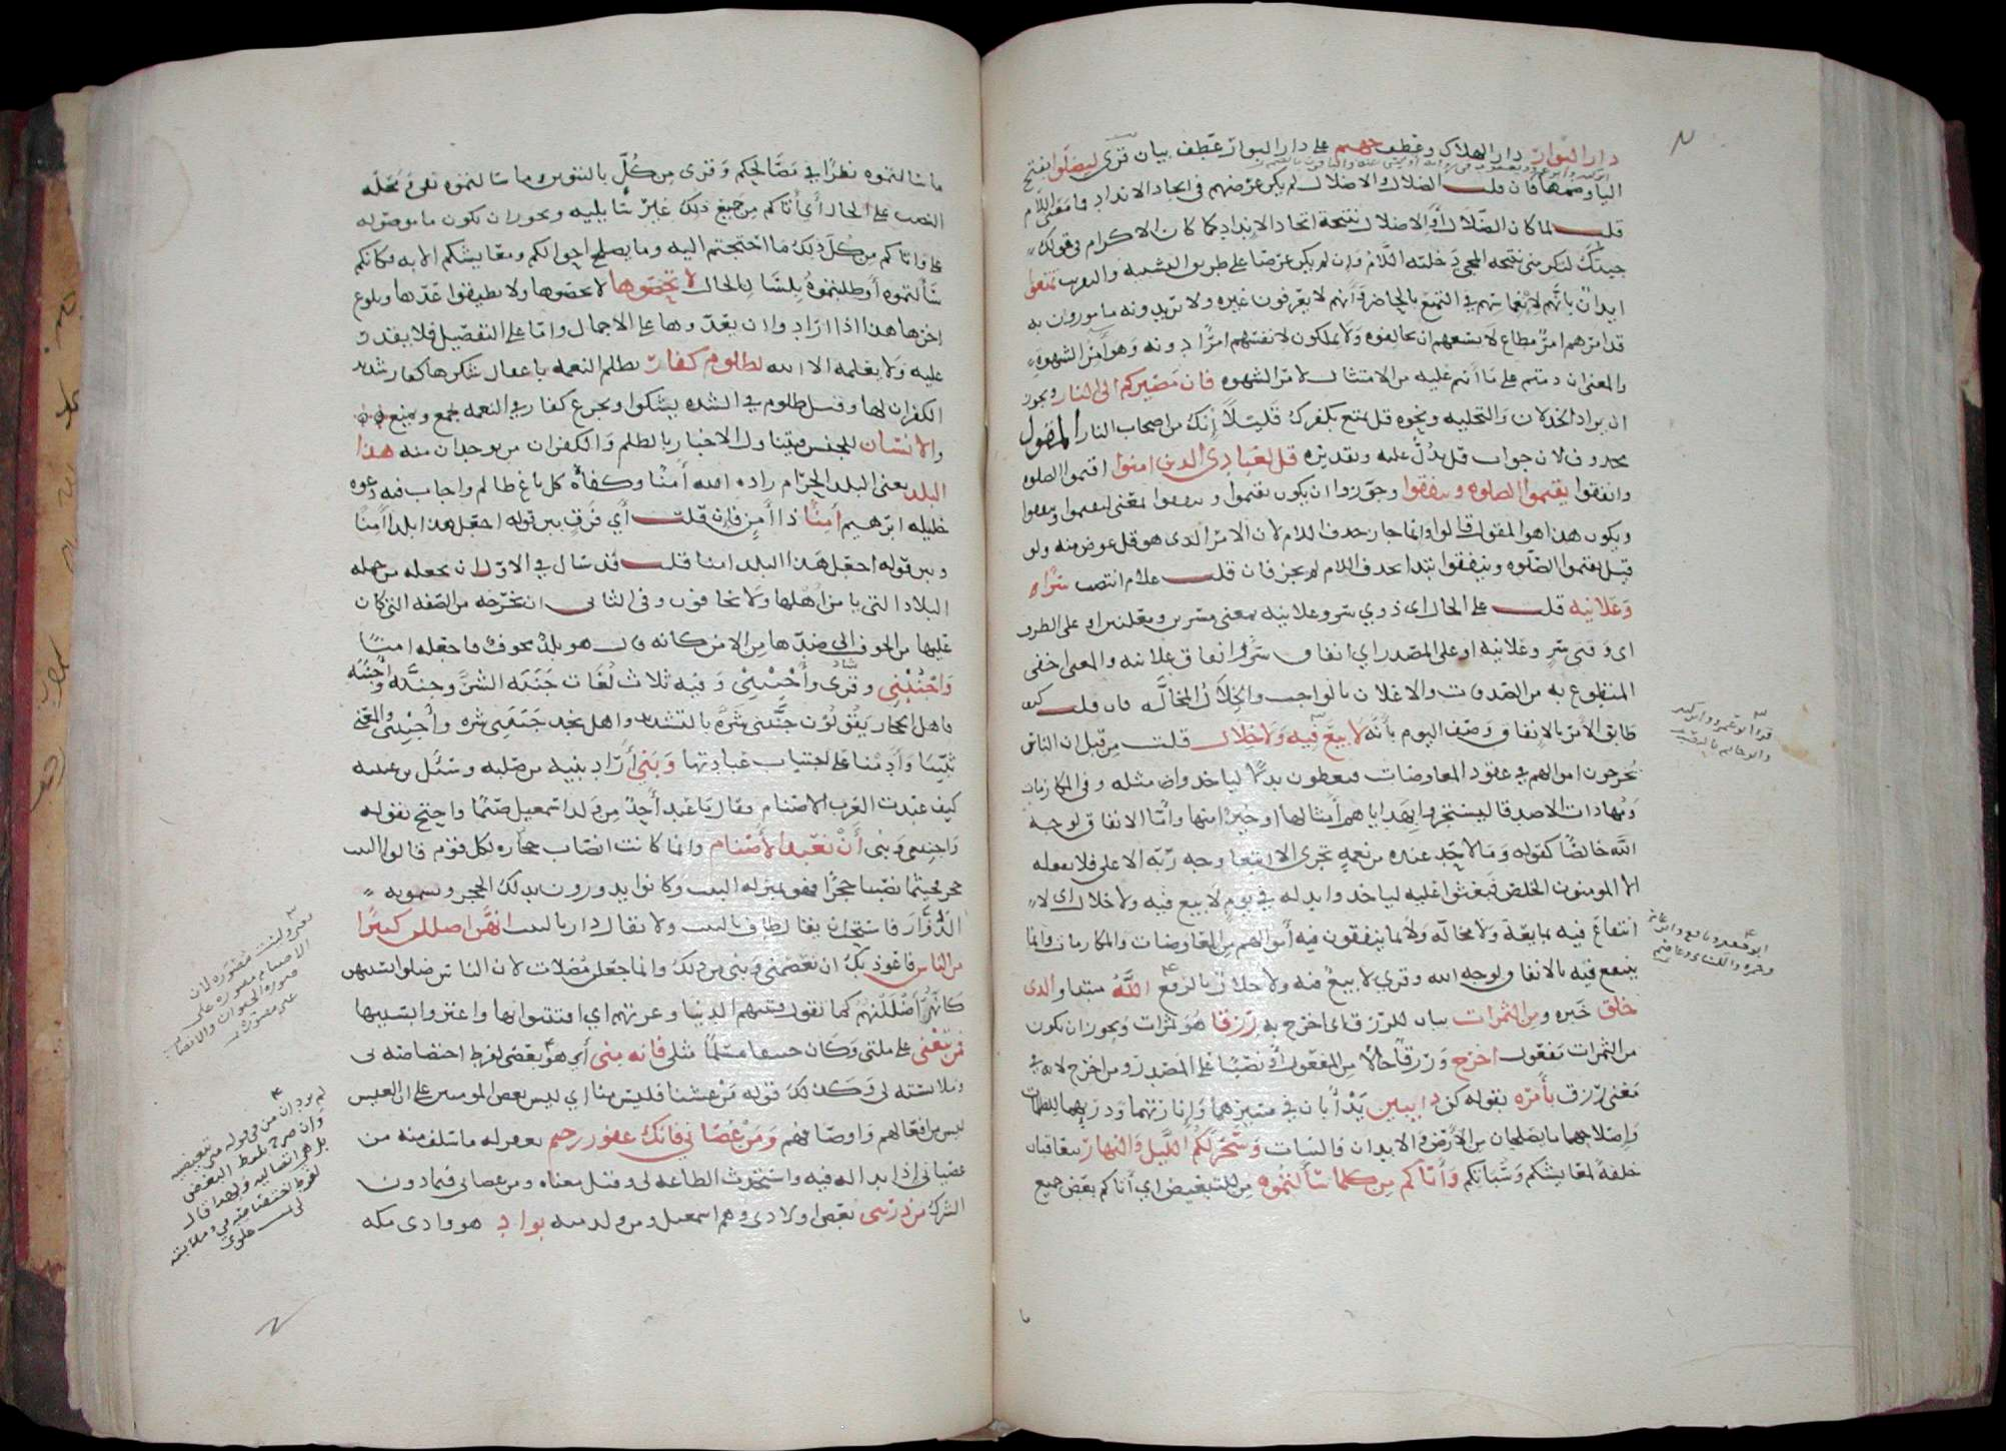 دار البوار دار الهلاك وعطف جهنم على دار البوار عطف بيان قرى ليضلوا بفتح
اليا وضمها فان قلت الضلال والاضلال لم يكن غرضهم في اتخاد الانداد فما معنى اللام
قلت لما كان الضلال او الاضلال نتيجة اتخاد الانداد كما كان الاكرام في قولك
جيتك لتكرمني نتيجه المجي دخلته اللام وان لم يكن غرضا على طريق التشبيه والتقريب تمتعوا
ايدان بانهم لانغماسهم في التمتع بالحاضر وانهم لا يعرفون غيره ولا يريدونه مامورون به
قد امرهم امر مطاع لا يسعهم ان يخالفوه ولا يملكون لانفسهم امرا دونه وهو امر الشهوه
والمعنى ان دمتم على ما انتم عليه من الامتثال لامر الشهوه فان مصيركم الى النار ويجوز
ان يراد الخدلان والتخليه ونحوه قل تمتع بكفرك قليلا إنك من اصحاب النار المقول
محدوف لان جواب قل يدل عليه وتقديره قل لعبادى الدين امنوا اقيموا الصلوه
وانفقوا يقيموا الصلوه وينفقوا وجوزوا ان يكون يقيموا وينفقوا بمعنى ليقيموا ولينفقوا
ويكون هدا هو المقول قالوا وانما جاز حدف اللام لان الامر الدى هو قل عوض منه ولو
قيل يقيموا الصلوه وينفقوا ابتدا بحدف اللام لم يجز فان قلت علام انتصب سرا
وعلانيه قلت على الحال اى ذوي سر وعلانيه بمعنى مسرين ومعلنين او على الظرف
اى وقتى سر وعلانيه او على المصدر اي انفاق سر وانفاق علانيه والمعنى اخفى
المتطوع به من الصدقات والاعلان بالواجب والخلال المخاله فان قلت كيف
طابق الامر بالانفاق وصف اليوم بانه لا بيع فيه ولا خلال قلت من قبل ان الناس
يخرجون اموالهم في عقود المعاوضات فيعطون بدلا لياخدوا مثله وفي المكارمات
ومهادات الاصدقا ليستجروا بهداياهم امثالها او خيرا منها واما الانفاق لوجه
الله خالصا كقوله وما لاحد عنده من نعمه تجزى الا ابتغا وجه ربه الاعلى فلا يفعله
الا المومنون الخلص فبعثوا عليه لياخدوا بدله في يوم لا بيع فيه ولا خلال اى لا
انتفاع فيه بمبايعة ولا مخالة ولا بما ينفقون فيه أموالهم من المعاوضات والمكارمات وانما
ينتفع فيه بالانفاق لوجه الله وقرى لا بيع فيه ولا خلال بالرفع الله مبتدا والدى
خلق خبره ومن الثمرات بيان للرزق اى اخرج به رزقا هو ثمرات ويجوز ان يكون
من الثمرات مفعول اخرج ورزقا حالا من المفعول أو نصبا على المصدر من اخرج لانه في
معنى رزق بأمره بقوله كن دايبين يدأبان في سيرهما وإنارتهما ودرئهما الظلمات
وإصلاحهما ما يصلحان من الأرض والابدان والنبات وسخر لكم الليل والنهار يتعاقبان
خلفة لمعاشكم وسباتكم وأتاكم من كل ما سألتموه من للتبعيض اي أتاكم بعض جميع
قرا ابو عمرو وابن كثير
ابو جعفر ونافع وابن عامر
وحمزه والكسائى وعاصم
ما سالتموه نظرا في مصالحكم وقرى من كل بالتنوين وما سالتموه نفي ومحله
النصب على الحال أي أتاكم من جميع ذلك غير سايليه ويجوز ان تكون ما موصوله
على واتاكم من كل ذلك ما احتجتم اليه وما يصلح احوالكم ومعايشكم الا به فكانكم
سألتموه أو طلبتموه بلسان الحال لا تحصوها لا تحصروها ولا تطيقوا عدها وبلوغ
اخرها هدا اذا ارادوا ان يعدوها على الاجمال واما على التفصيل فلا يقدر
عليه ولا يعلمه الا الله لظلوم كفار يظلم النعمه باغفال شكرها كفار شديد
الكفران لها وقيل ظلوم في الشده يشكوا ويجزع كفار في النعمه يجمع ويمنع
والانسان للجنس فيتناول الاخبار بالظلم والكفران من يوجدان منه هدا
البلد يعنى البلد الحرام زاده الله أمنا وكفاه كل باغ ظالم واجاب فيه دعوه
خليله ابرهيم امنا ذا امن فان قلت أي فرق بين قوله اجعل هدا بلدا امنا
وبين قوله اجعل هدا البلد امنا قلت قد سال في الاول ان يجعله من جمله
البلاد التى يامن اهلها ولا يخافون وفى الثانى ان يخرجه من الصفه التى كان
عليها من الخوف الى ضدها من الامن كانه قال هو بلد مخوف فاجعله امنا
واجنبني وقرى وأجنبني وفيه ثلاث لغات جنبه الشر وجنبه وأجنبه
فاهل الحجاز يقولون جنبنى شره بالتشديد واهل نجد جنبنى شره وأجنبنى والمعنى
ثبتنا وأدمنا على اجتناب عبادتها وبني أراد بنيه من صلبه وسئل بن عيينه
كيف عبدت العرب الاصنام فقال ما عبد أحد من ولد اسمعيل صنما واحتج بقوله
واجنبنى وبنى أن نعبد الأصنام وانما كانت انصاب حجاره لكل قوم قالوا البيت
حجر فحيثما نصبنا حجرا فهو بمنزله البيت وكانوا يدورون بدلك الحجر ويسمونه
الدوار فاستحب ان يقال طاف بالبيت ولا يقال دار بالبيت انهن اضللن كثيرا
من الناس فاعوذ بك ان تعصمنى وبنى من ذلك وانما جعلن مضلات لان الناس ضلوا بسببهن
كانهن أضللنهم كما تقول فتنتهم الدنيا وغرتهم اي افتتنوا بها واغتروا بسببها
فمن تبعني على ملتى وكان حنيفا مسلما مثلى فانه مني أي هو بعضى لفرط اختصاصه لى
وملابسته لى وكذلك قوله من غشنا فليس منا اي ليس بعض المومنين على ان الغش
ليس من افعالهم واوصافهم ومن عصانى فانك غفور رحيم تغفر له ما سلف منه من
عصيانى إذا بدا له فيه واستحدث الطاعه لى وقيل معناه ومن عصانى فيما دون
الشرك من ذريتى بعض اولادى وهم اسمعيل ومن ولد منه بواد هو وادى مكه
الاصنام مصوره على
صوره الحيوان والانصاب
غير مصوره
لم يرد ان من في قوله منى تبعيضيه
وان صرح بلفظ البعض
بل هي اتصاليه ولهدا قال
لفرط اختصاصه بي وملابسته
لى